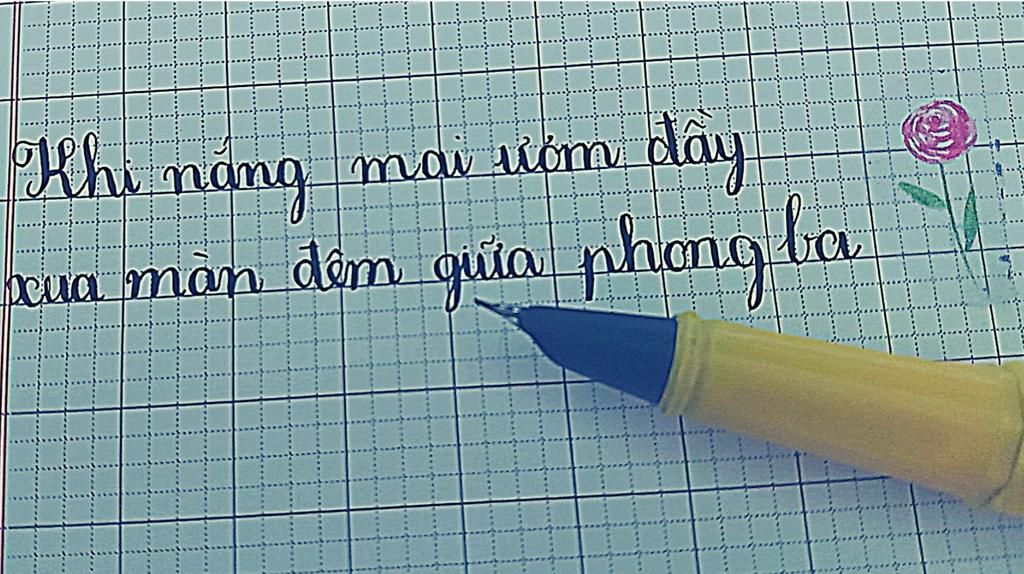 Khi nắng mai ươm đầy
xua màn đêm giữa phong ba